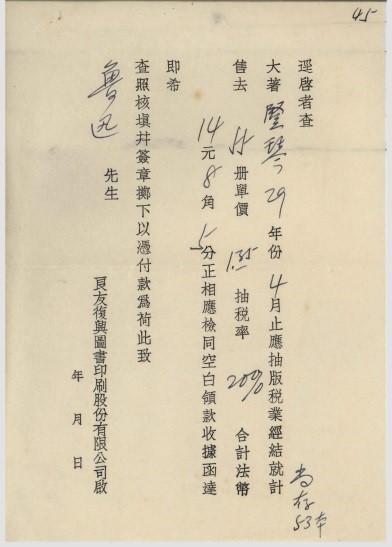 45
逕啓者查
大著豎琴29年份4月止應抽版税業經結就計
售去55册單價1.35抽税率20%合計法幣
14元8角5分正相應檢同空白領款收據函達
即希
查照核填幷簽章擲下以憑付款爲荷此致
魯迅先生
良友復興圖書印刷股份有限公司啟
年月日
尚存
53本